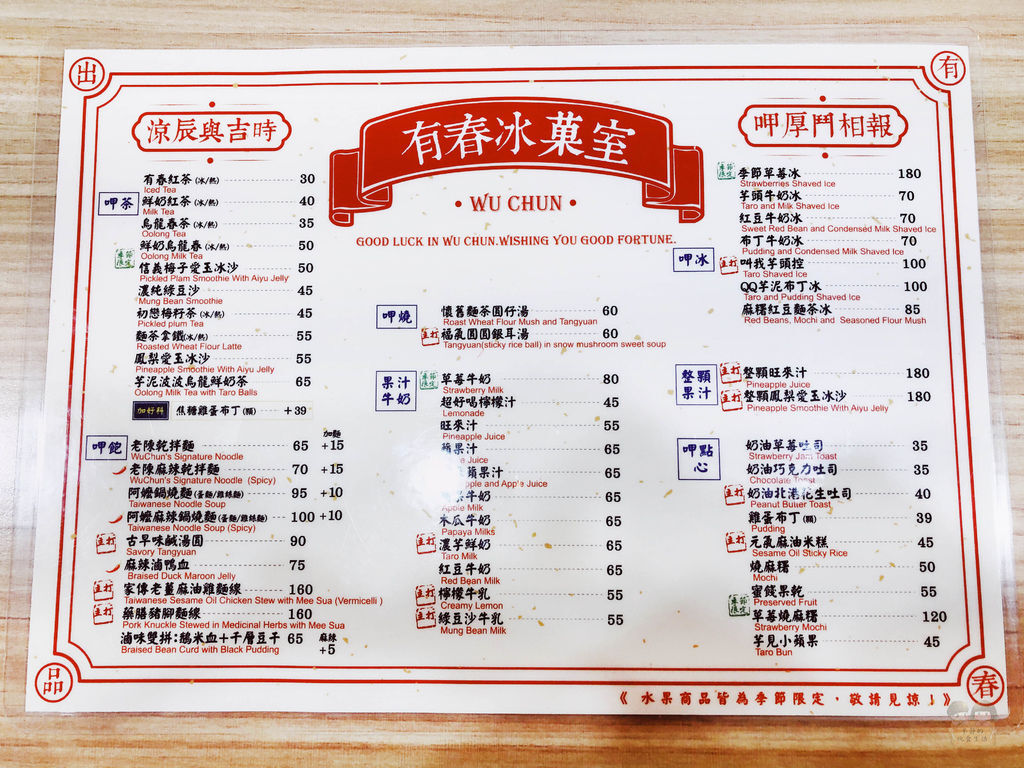 出
有
有春冰菓室
• WU CHUN •
GOOD LUCK IN WU CHUN.WISHING YOU GOOD FORTUNE.
涼辰與吉時
呷茶
有春紅茶(冰/熱) 30
Iced Tea
鮮奶紅茶(冰/熱) 40
Milk Tea
烏龍春茶(冰/熱) 35
Oolong Tea
鮮奶烏龍春(冰/熱) 50
Oolong Milk Tea
季節限定 信義梅子愛玉冰沙 50
Pickled Plam Smoothie With Aiyu Jelly
濃純綠豆沙 45
Mung Bean Smoothie
初戀梅籽茶(冰/熱) 45
Pickled plum Tea
麵茶拿鐵(冰/熱) 55
Roasted Wheat Flour Latte
鳳梨愛玉冰沙 55
Pineapple Smoothie With Aiyu Jelly
芋泥波波烏龍鮮奶茶 65
Oolong Milk Tea with Taro Balls
加好料 焦糖雞蛋布丁(顆) +39
呷飽
加麵
老陳乾拌麵 65 +15
WuChun's Signature Noodle
老陳麻辣乾拌麵 70 +15
WuChun's Signature Noodle (Spicy)
阿嬤鍋燒麵(蛋麵/雞絲麵) 95 +10
Taiwanese Noodle Soup
阿嬤麻辣鍋燒麵(蛋麵/雞絲麵) 100 +10
Taiwanese Noodle Soup (Spicy)
主打 古早味鹹湯圓 90
Savory Tangyuan
麻辣滷鴨血 75
Braised Duck Maroon Jelly
主打 家傳老薑麻油雞麵線 160
Taiwanese Sesame Oil Chicken Stew with Mee Sua (Vermicelli )
主打 藥膳豬腳麵線 160
Pork Knuckle Stewed in Medicinal Herbs with Mee Sua
滷味雙拼:鵝米血+千層豆干 65 麻辣+5
Braised Bean Curd with Black Pudding
呷燒
懷舊麵茶圓仔湯 60
Roast Wheat Flour Mush and Tangyuan
主打 福氣圓圓銀耳湯 60
Tangyuan(sticky rice ball) in snow mushroom sweet soup
果汁牛奶
季節限定 草莓牛奶 80
Strawberry Milk
超好喝檸檬汁 45
Lemonade
旺來汁 55
Pineapple Juice
蘋果汁 65
Juice
蘋果汁 65
apple and App'e Juice
果牛奶 65
Apple Milk
木瓜牛奶 65
Papaya Milks
主打 濃芋鮮奶 65
Taro Milk
紅豆牛奶 65
Red Bean Milk
主打 檸檬牛乳 55
Creamy Lemon
主打 綠豆沙牛乳 55
Mung Bean Milk
呷厚鬥相報
呷冰
季節限定 季節草莓冰 180
Strawberries Shaved Ice
芋頭牛奶冰 70
Taro and Milk Shaved Ice
紅豆牛奶冰 70
Sweet Red Bean and Condensed Milk Shaved Ice
布丁牛奶冰 70
Pudding and Condensed Milk Shaved Ice
主打 叫我芋頭控 100
Taro Shaved Ice
QQ芋泥布丁冰 100
Taro and Pudding Shaved Ice
麻糬紅豆麵茶冰 85
Red Beans, Mochi and Seasoned Flour Mush
整顆果汁
主打 整顆旺來汁 180
Pineapple Juice
主打 整顆鳳梨愛玉冰沙 180
Pineapple Smoothie With Aiyu Jelly
呷點心
奶油草莓吐司 35
Strawberry Jam Toast
奶油巧克力吐司 35
Chocolate Toast
主打 奶油北港花生吐司 40
Peanut Butter Toast
雞蛋布丁(顆) 39
Pudding
主打 元氣麻油米糕 45
Sesame Oil Sticky Rice
燒麻糬 50
Mochi
蜜餞果乾 55
Preserved Fruit
季節限定 草莓燒麻糬 120
Strawberry Mochi
芋見小蘋果 45
Taro Bun
品
春
《 水果商品皆為季節限定，敬請見諒！》